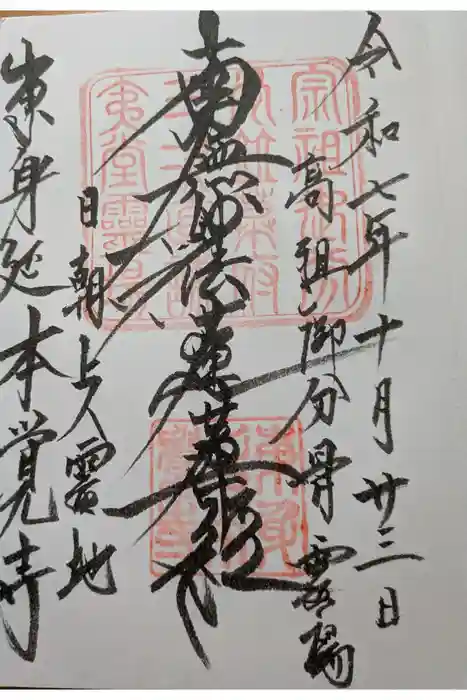 令和七年十月廿三日
高祖御分骨霊場
南無妙法蓮華経
日朝上人霊地
東身延本覺寺